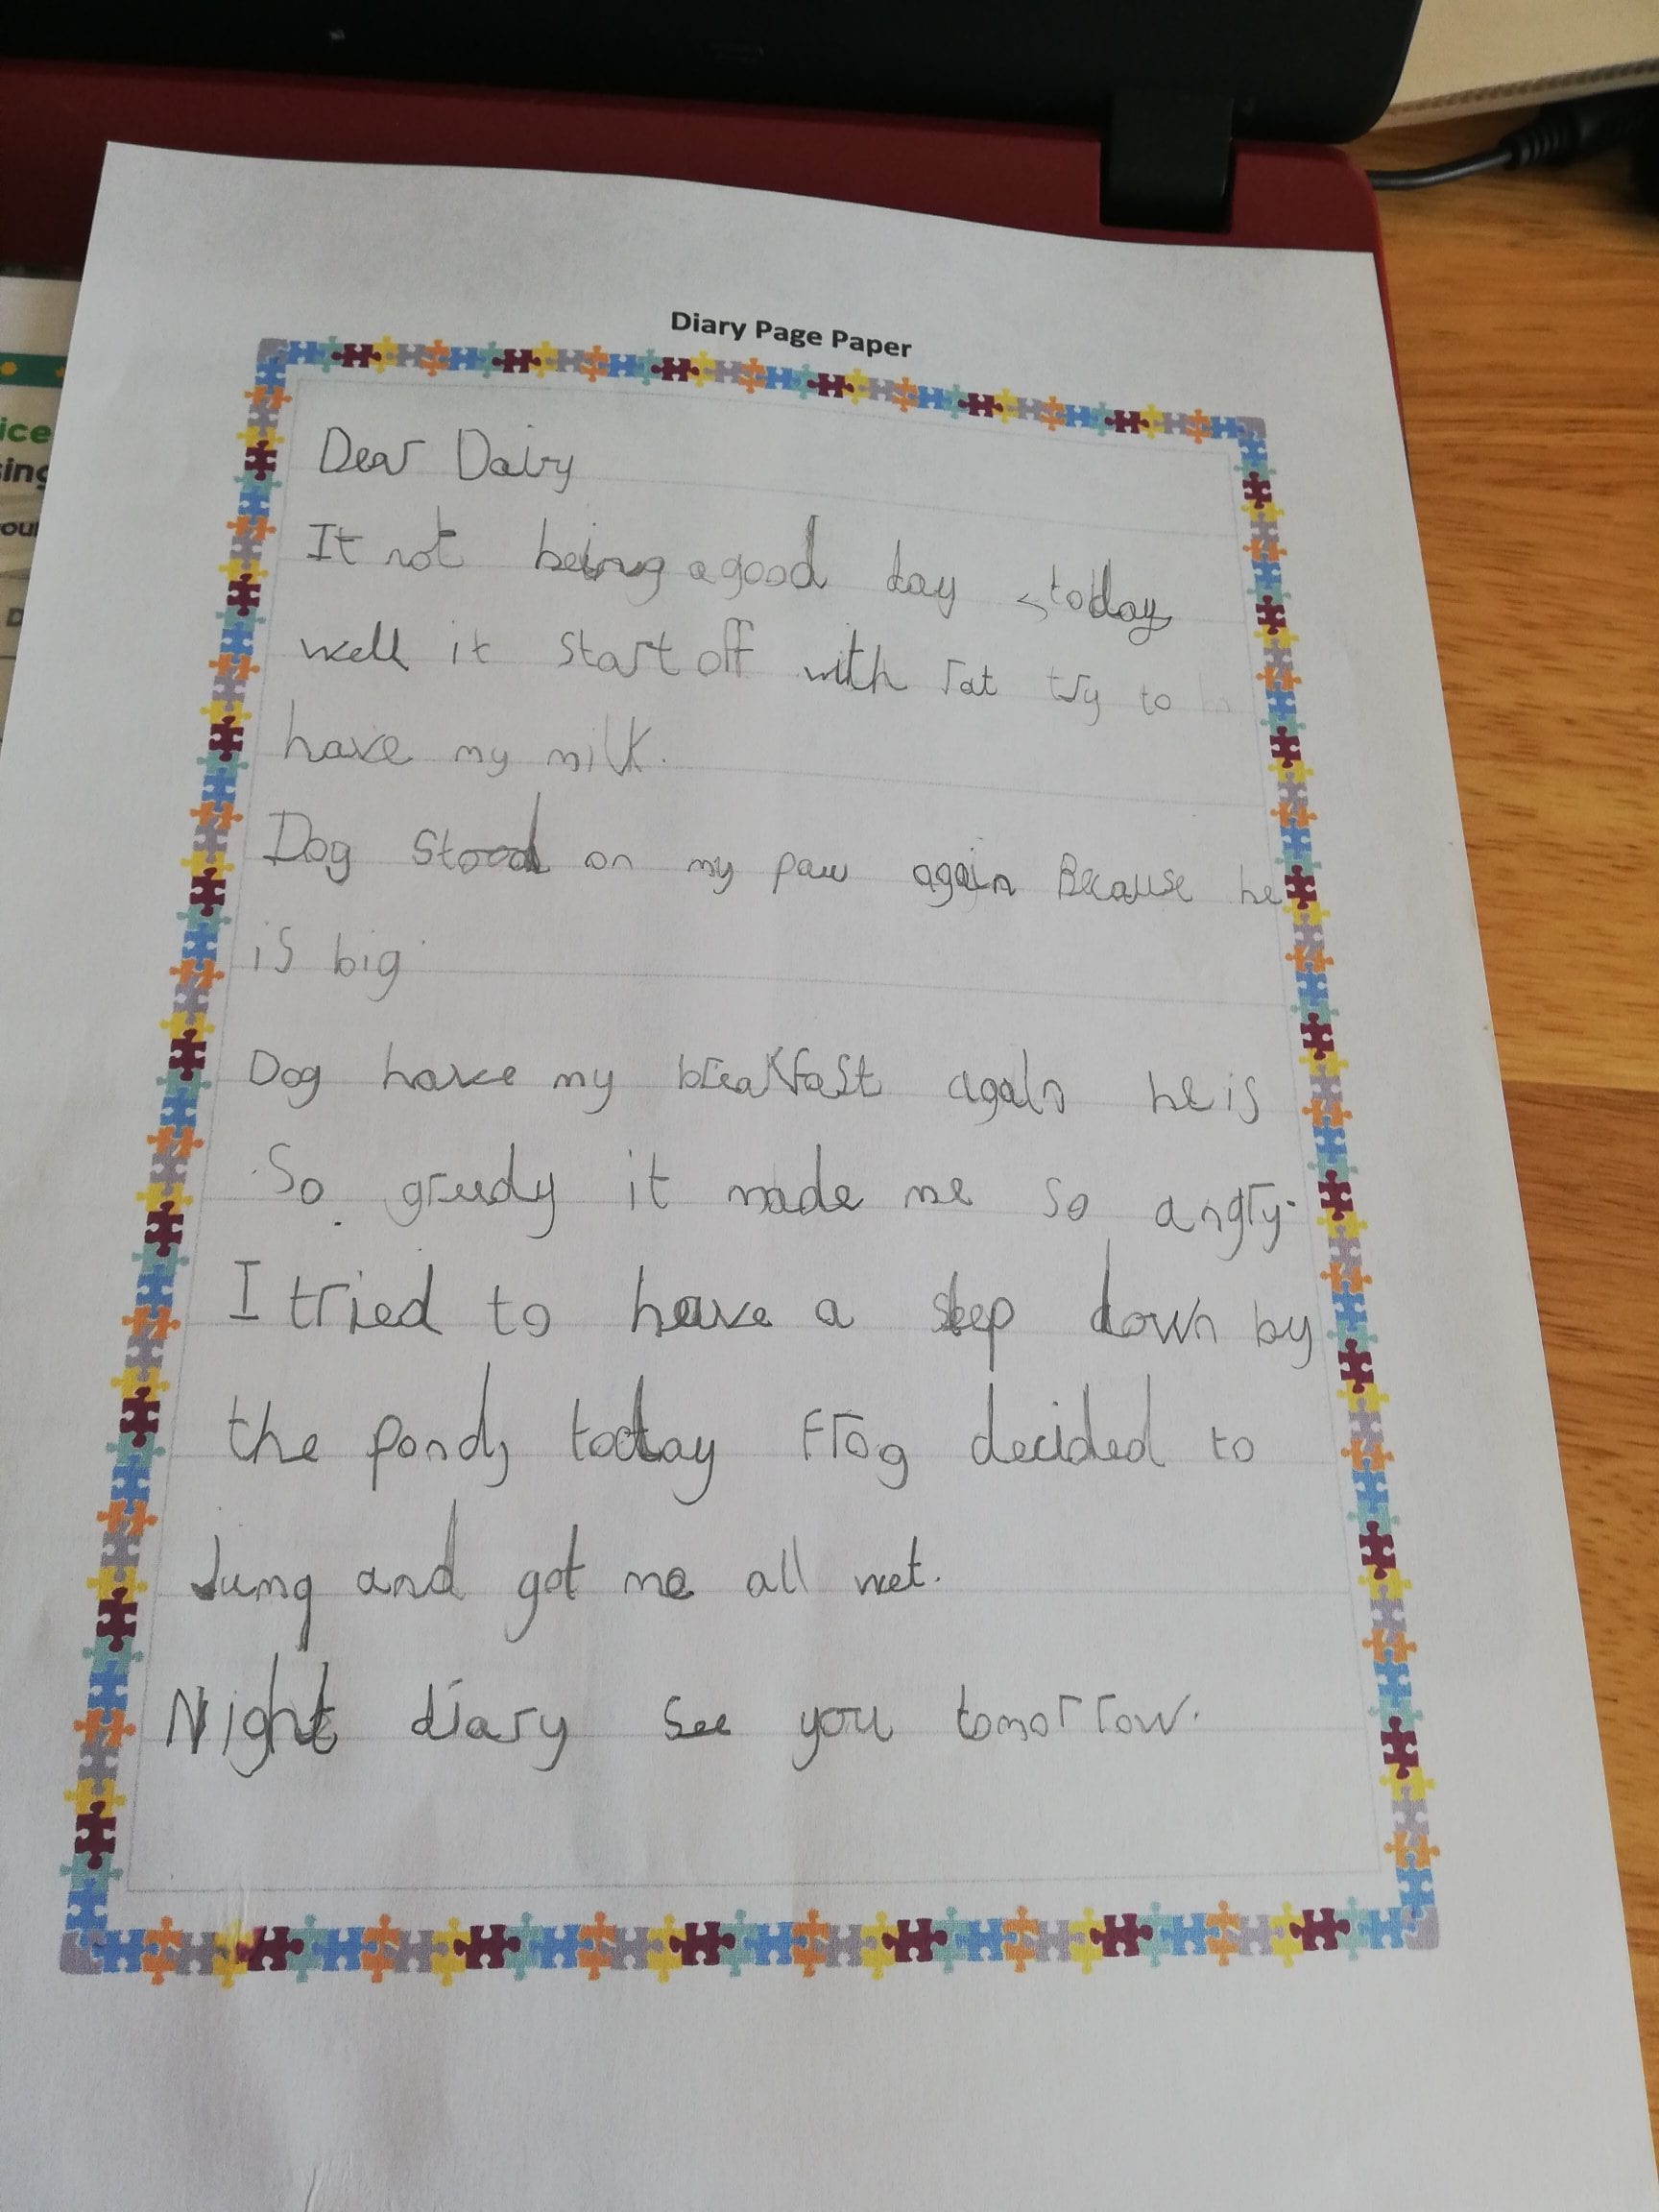 Diary Page Paper
Dear Dairy
It not being a good day today
well it start off with rat try to
have my milk.
Dog stood on my paw again Because he
is big
Dog have my breakfast again he is
So greedy it made me so angry.
I tried to have a sleep down by
the pond, today Frog decided to
Jump and got me all wet.
Night diary see you tomorrow.
ice
sing
our
D